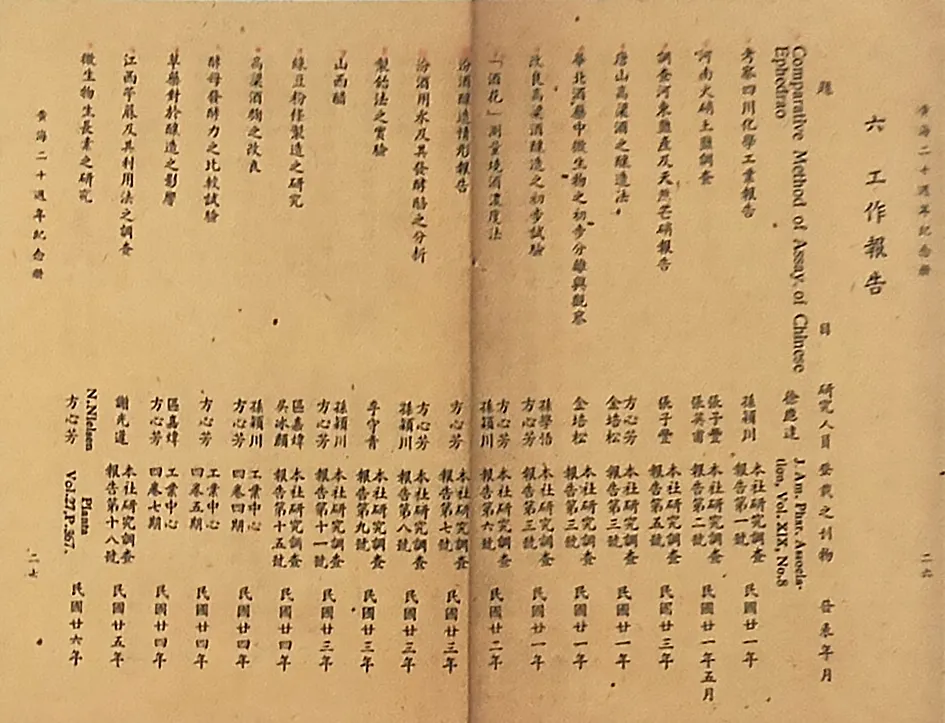 黃海二十週年紀念册
二六
六 工作報告
題 目 研究人員 登載之刊物 發表年月
Comparative Method of Assay of Chinese Ephedrae 徐應達 J. Am. Phar. Association, Vol. XIX, No.8
考察四川化學工業報告 孫穎川 本社研究調查報告第一號 民國廿一年
河南火硝土鹽調查 張子豐 張英甫 本社研究調查報告第二號 民國廿一年五月
調查河東鹽產及天然芒硝報告 張子豐 本社研究調查報告第五號 民國廿三年
唐山高粱酒之釀造法 方心芳 金培松 本社研究調查報告第三號 民國廿一年
華北酒藥中微生物之初步分離與觀察 金培松 本社研究調查報告第三號 民國廿一年
改良高粱酒釀造之初步試驗 孫學悟 方心芳 本社研究調查報告第三號 民國廿一年
「酒花」測量燒酒濃度法 方心芳 孫穎川 本社研究調查報告第六號 民國廿二年
汾酒釀造情形報告 方心芳 本社研究調查報告第七號 民國廿三年
汾酒用水及其發酵醅之分析 方心芳 孫穎川 本社研究調查報告第八號 民國廿三年
製飴法之實驗 李守青 本社研究調查報告第九號 民國廿三年
山西醋 孫穎川 方心芳 本社研究調查報告第十一號 民國廿三年
綠豆粉條製造之研究 區嘉煒 吳冰顏 本社研究調查報告第十五號 民國廿四年
高粱酒麴之改良 孫穎川 方心芳 工業中心四卷四期 民國廿四年
酵母發酵力之比較試驗 方心芳 工業中心四卷五期 民國廿四年
草藥對於釀造之影響 區嘉煒 方心芳 工業中心四卷七期 民國廿四年
江西芋蔴及其利用法之調查 謝光蘧 本社研究調查報告第十八號 民國廿五年
微生物生長素之研究 N. Nielsen 方心芳 Planta Vol.27,P.367. 民國廿六年
黃海二十週年紀念册
二七